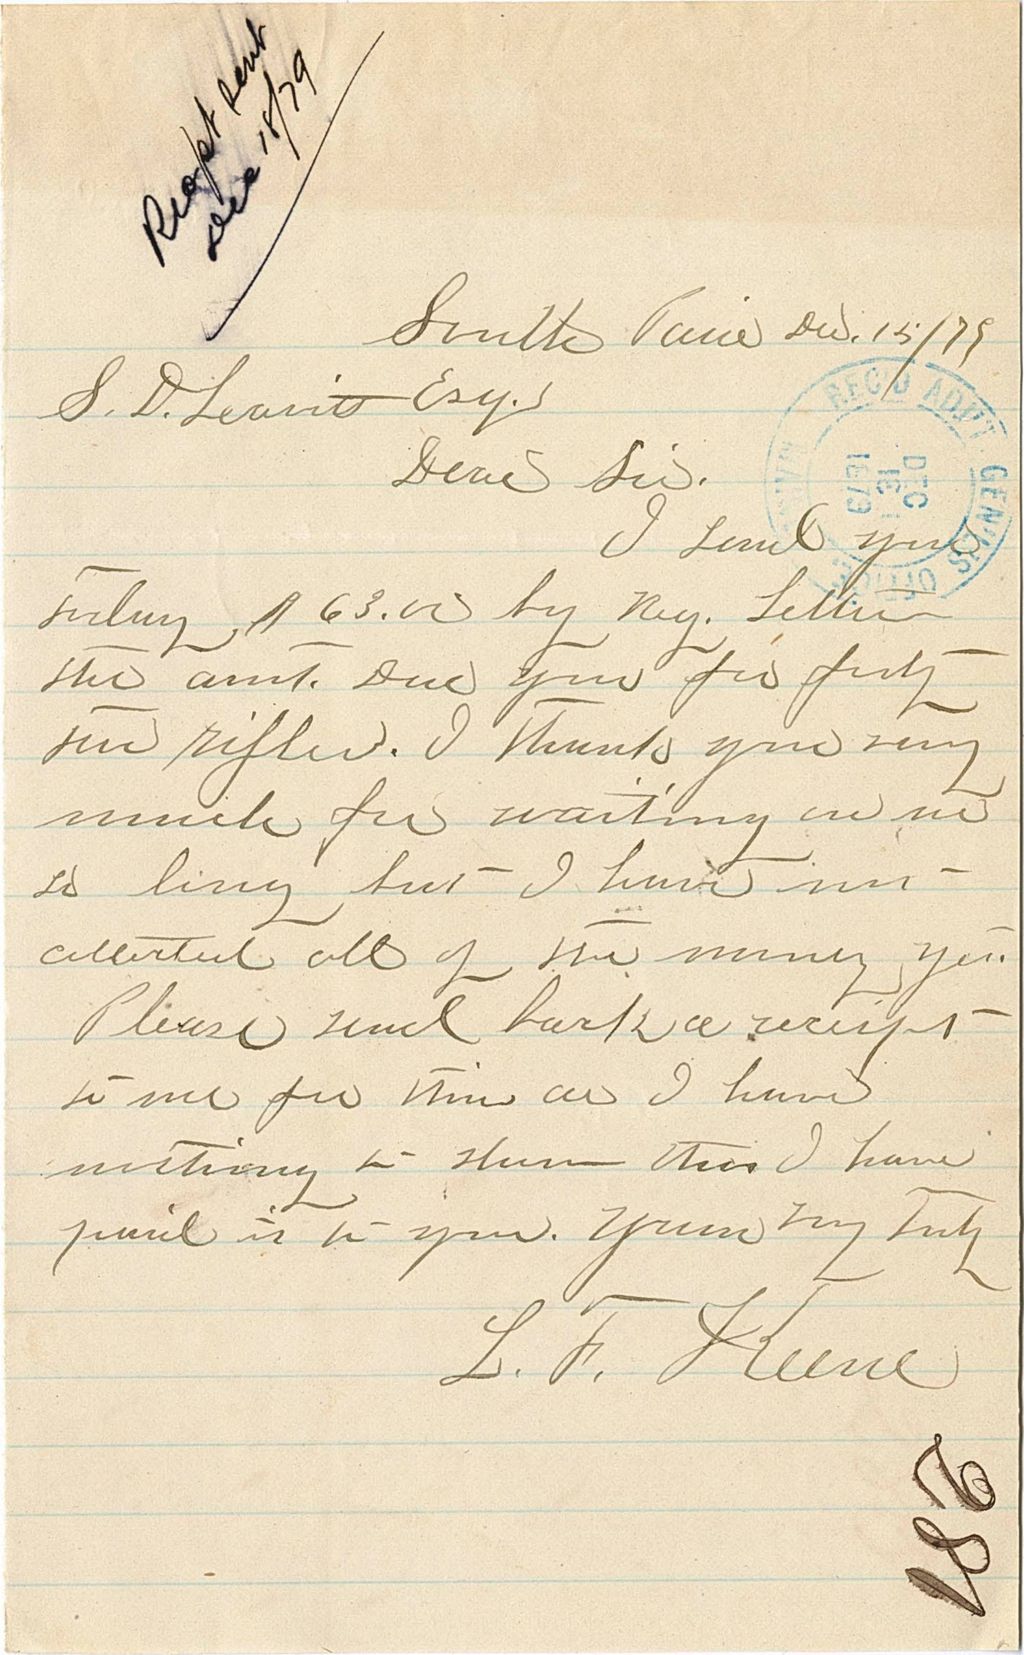 Recpt sent
Dec 18/79
South Paris Dec. 15/79
S. D. Leavitt Esqr.
Dear Sir.
REC'D ADJ'T GEN'L'S OFFICE
DEC
1879
I send you
today $63.00 by Reg. Letter
the amt. due you for forty
two rifles. I thank you very
much for waiting on me
so long but I have not
collected all of the money yet.
Please send back a receipt
to me for this as I have
nothing to show that I have
paid it to you. Yours very truly
L. F. Keene
182